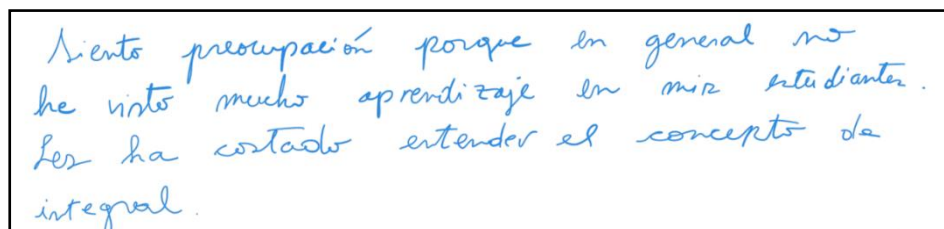 Siento preocupación porque en general no
he visto mucho aprendizaje en mis estudiantes.
Les ha costado entender el concepto de
integral.